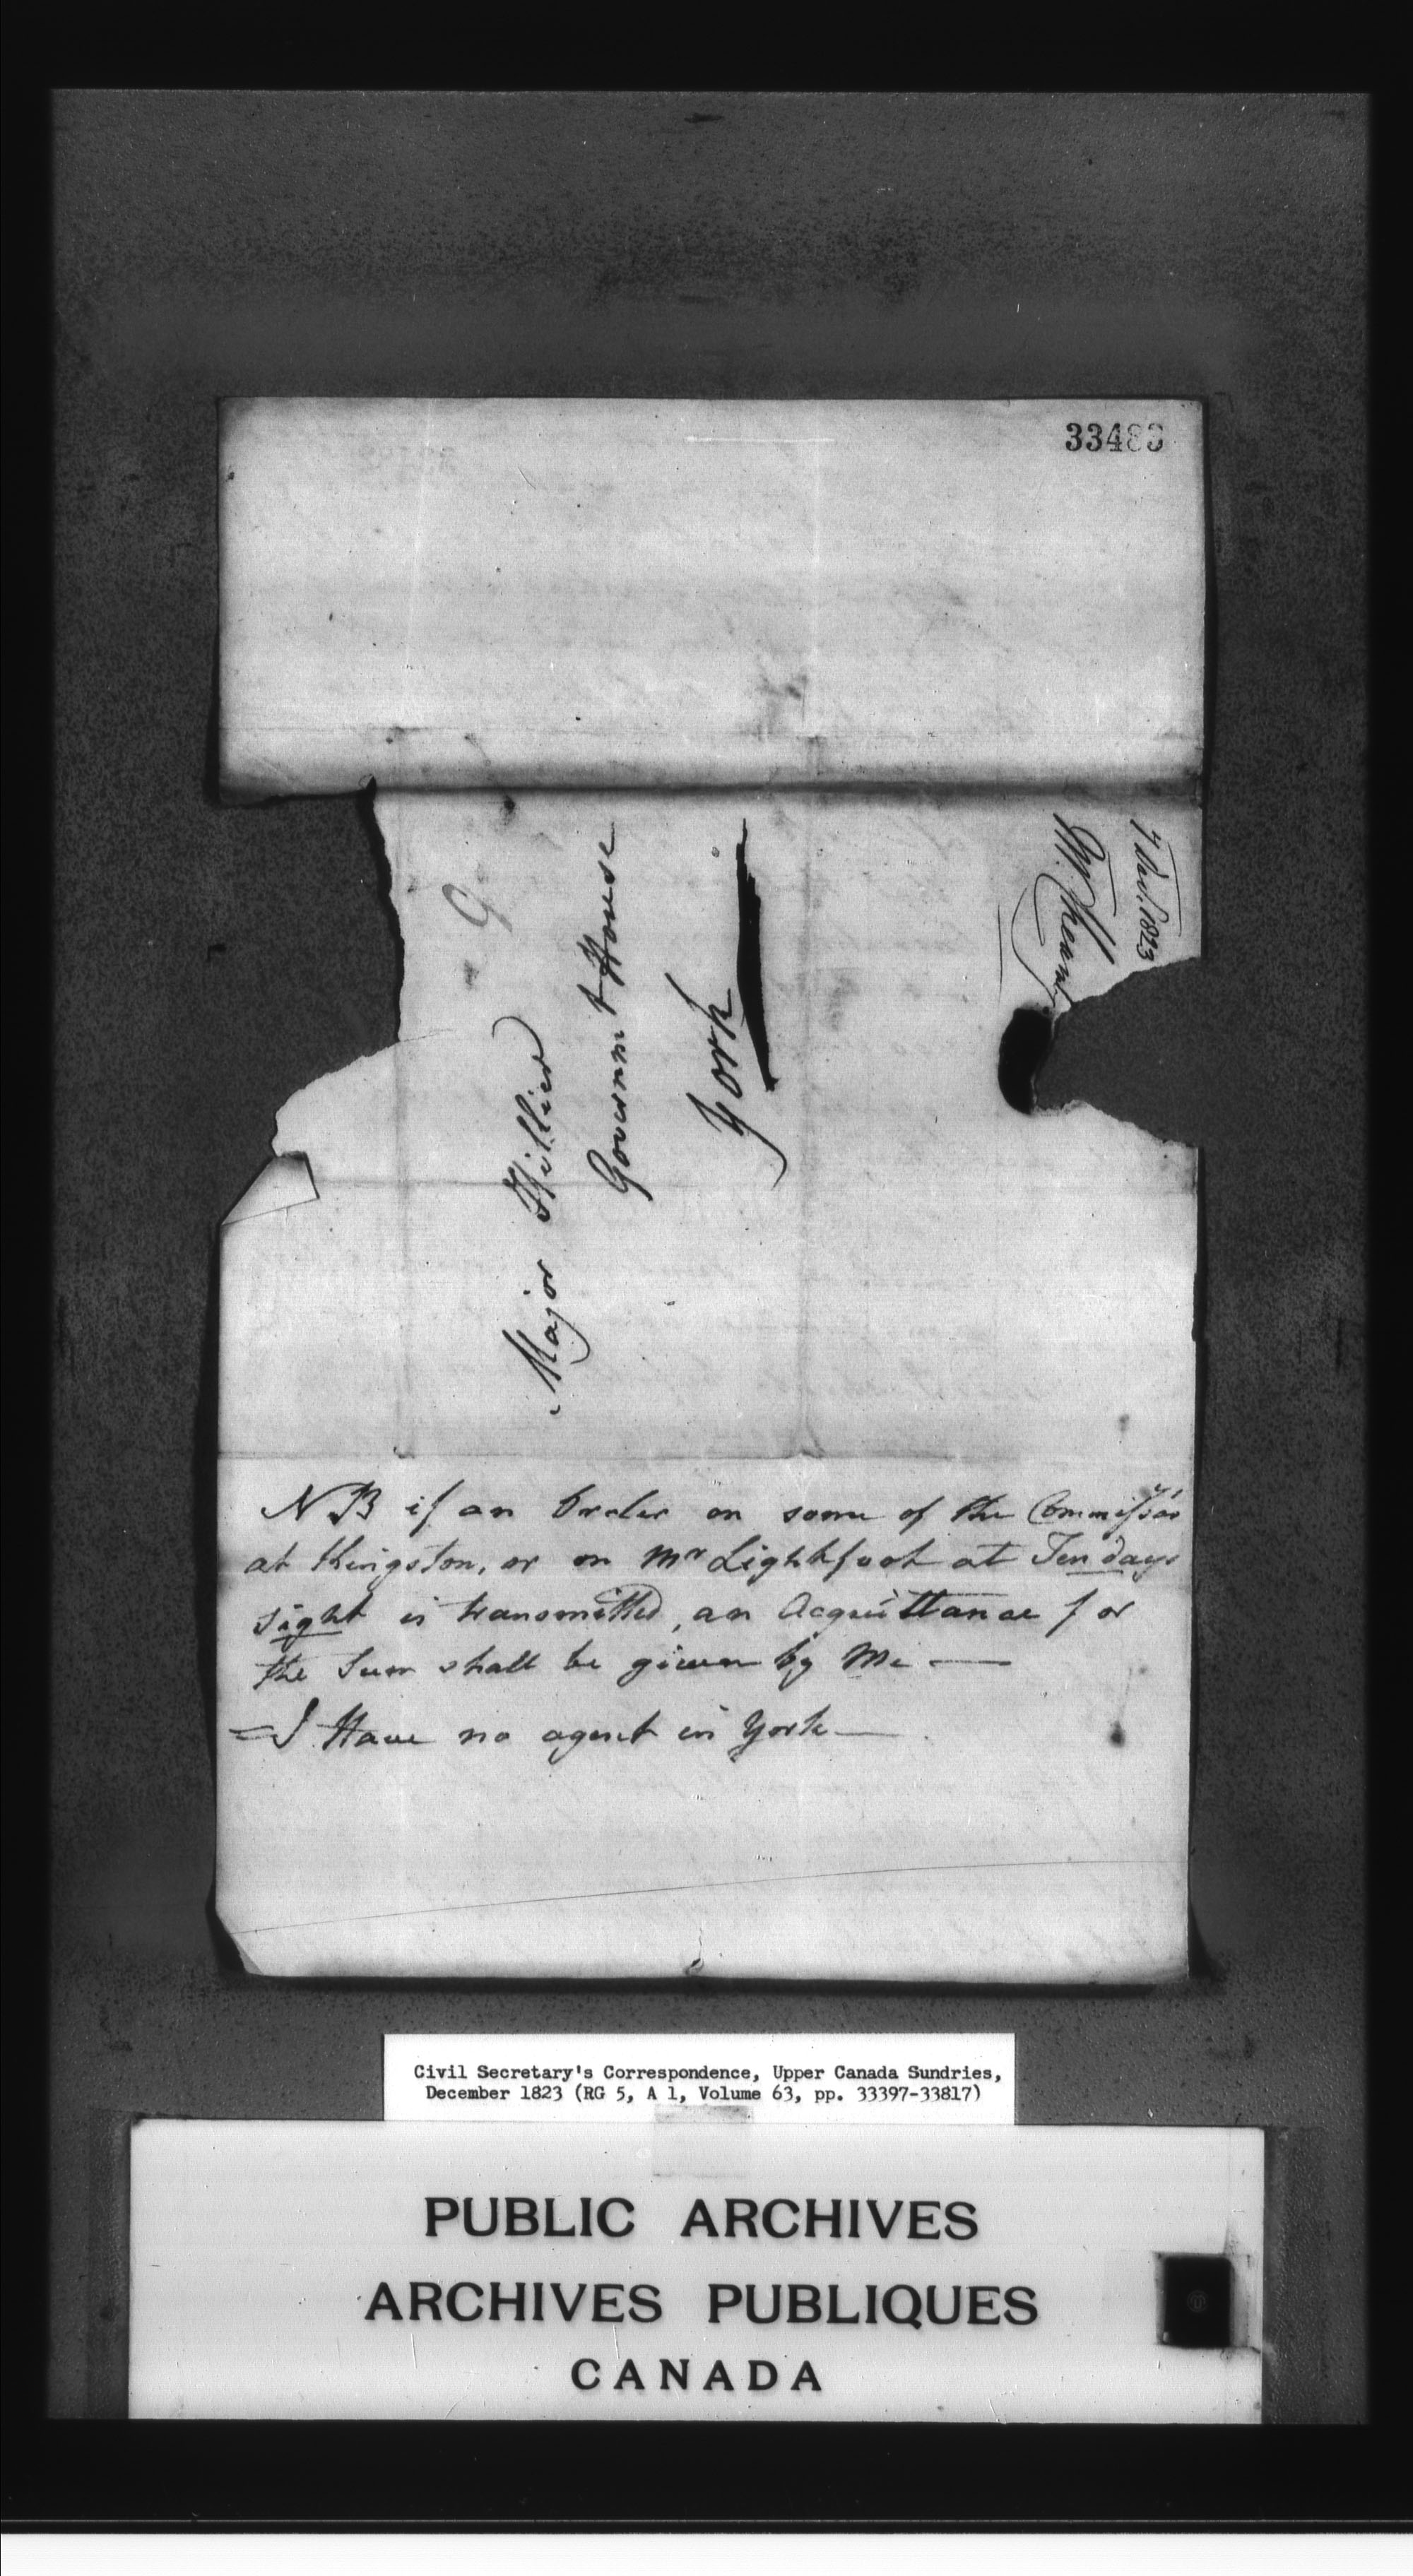 7 Dec. 1823
Major Hillier
Governmt House
York
N B if an Order on some of the Commissrs
at Kingston, or on Mr Lightfoot at Ten days
sight is transmitted, an Acquittance for
the Sum shall be given by Me —
= I Have no agent in York —
Civil Secretary's Correspondence, Upper Canada Sundries,
December 1823 (RG 5, A 1, Volume 63, pp. 33397-33817)
PUBLIC ARCHIVES
ARCHIVES PUBLIQUES
CANADA